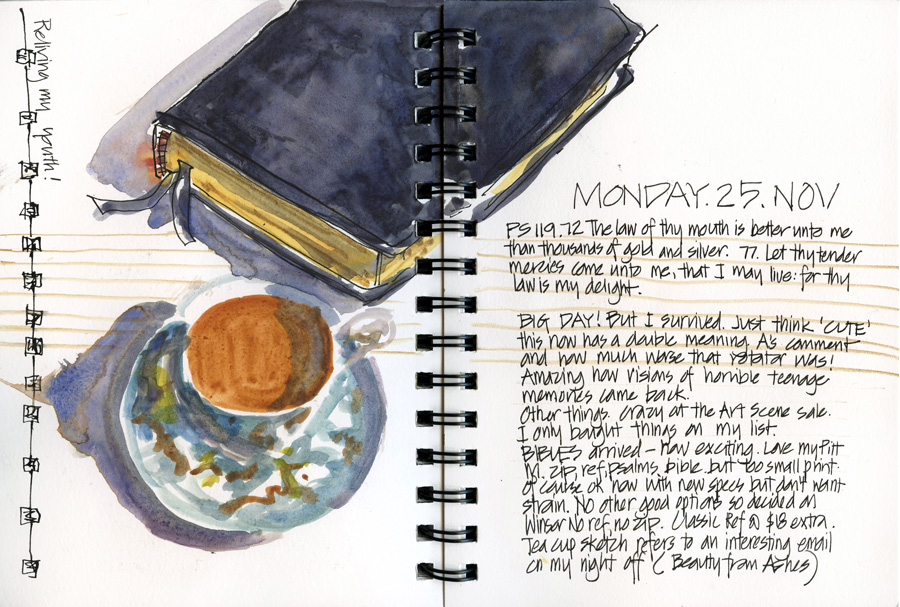 Reliving my youth!
MONDAY. 25. NOV
PS 119.72 The law of thy mouth is better unto me
than thousands of gold and silver. 77. Let thy tender
mercies come unto me, that I may live: for thy
law is my delight.
BIG DAY! But I survived. Just think 'CUTE'
this now has a double meaning. A's comment
and how much worse that rotator was!
Amazing how visions of horrible teenage
memories came back.
Other things. Crazy at the Art Scene sale.
I only bought things on my list.
BIBLES arrived - how exciting. Love my Pitt
M. zip, ref, psalms, bible. but too small print.
Of course ok now with new specs but don't want
strain. No other good options so decided on
Winsor No ref, no zip. Classic Ref @ $18 extra.
Tea cup sketch refers to an interesting email
on my night off (Beauty from Ashes)